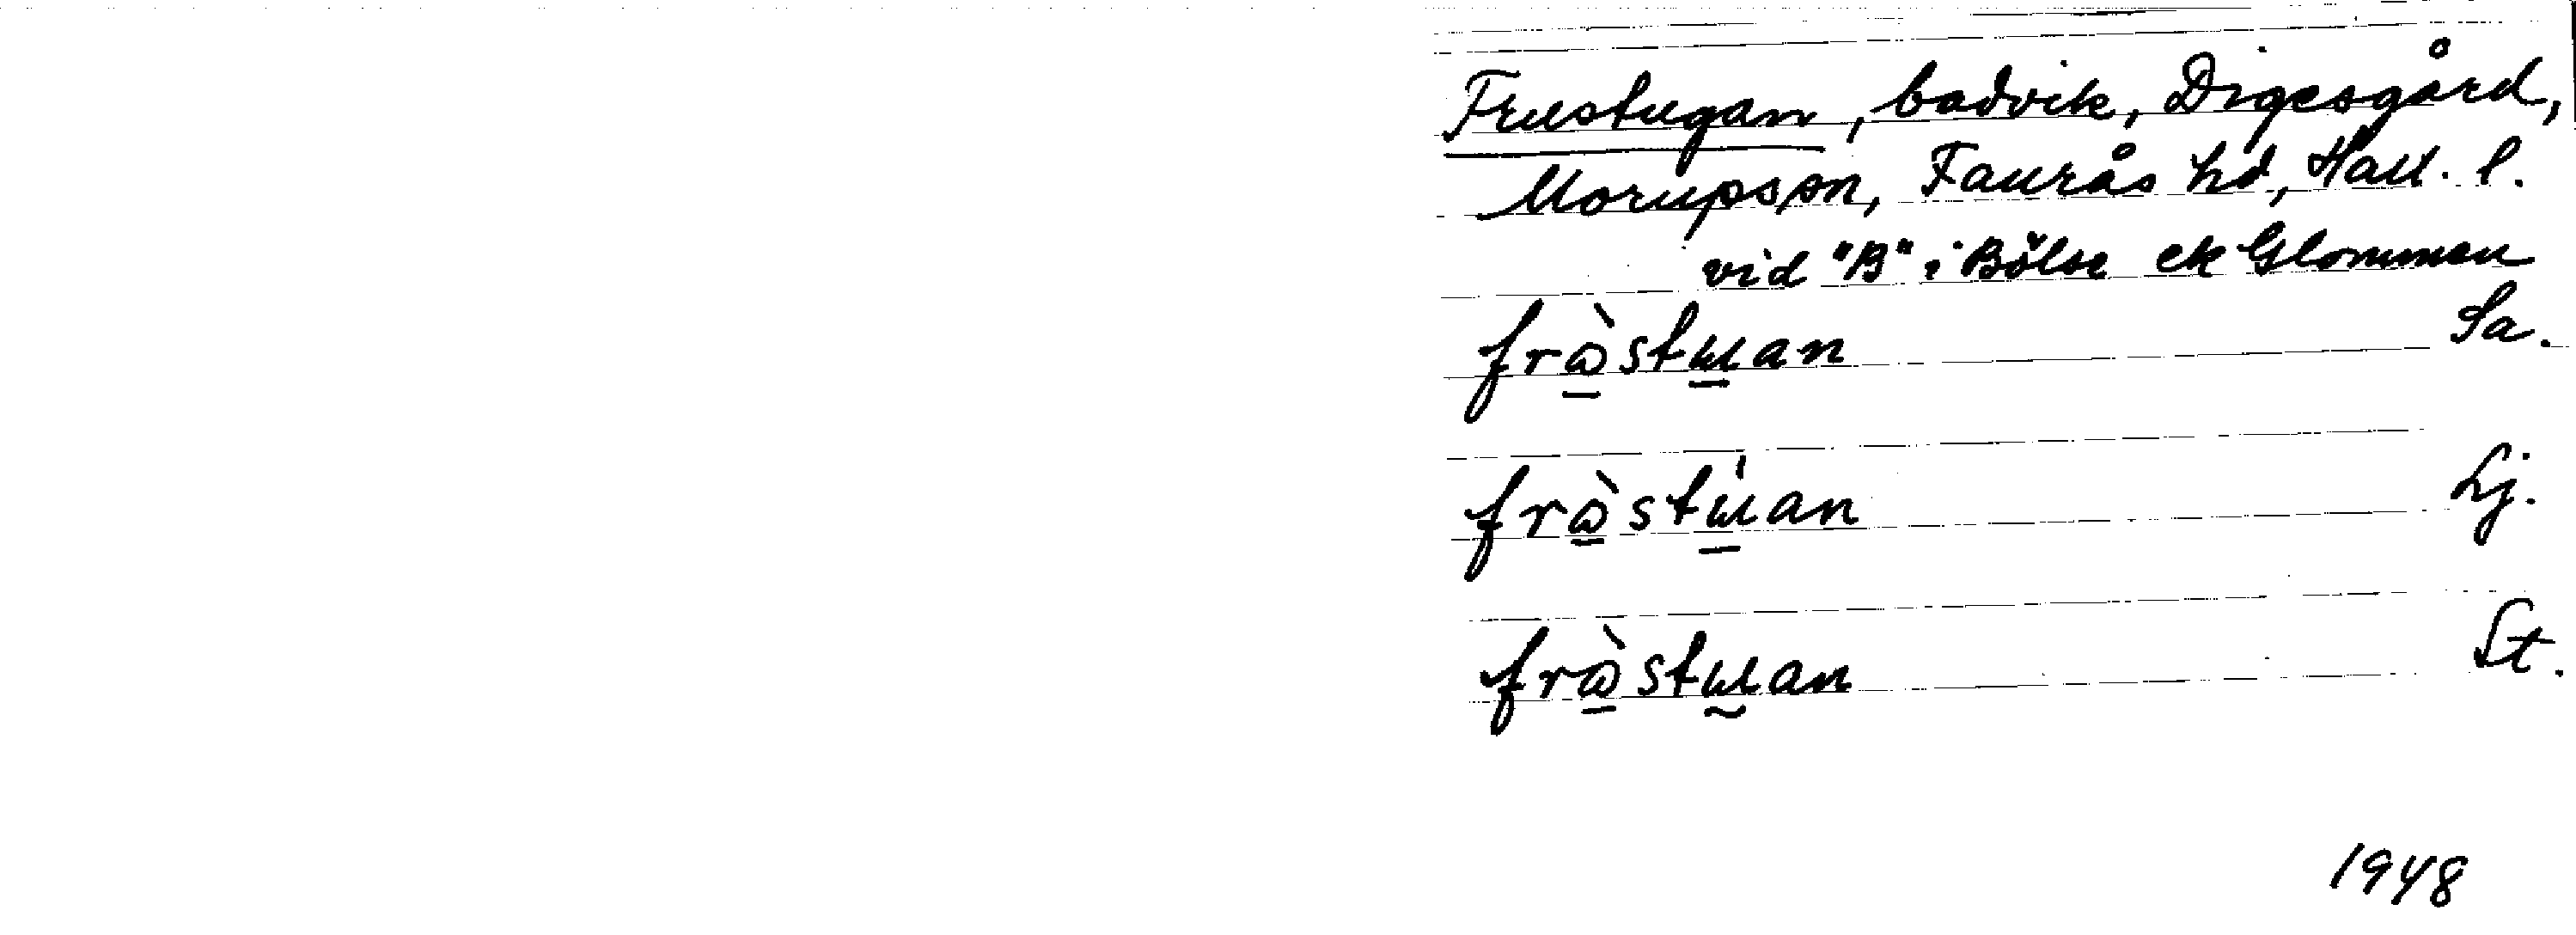 Frustugan, badvik, Digesgård,
Morups sn, Faurås hd, Hall. l.
vid "B" i Bölse ek Glommen
frὼstɯan Sa.
frὼstɯ́an Lj.
frὼstɯan St.
1948